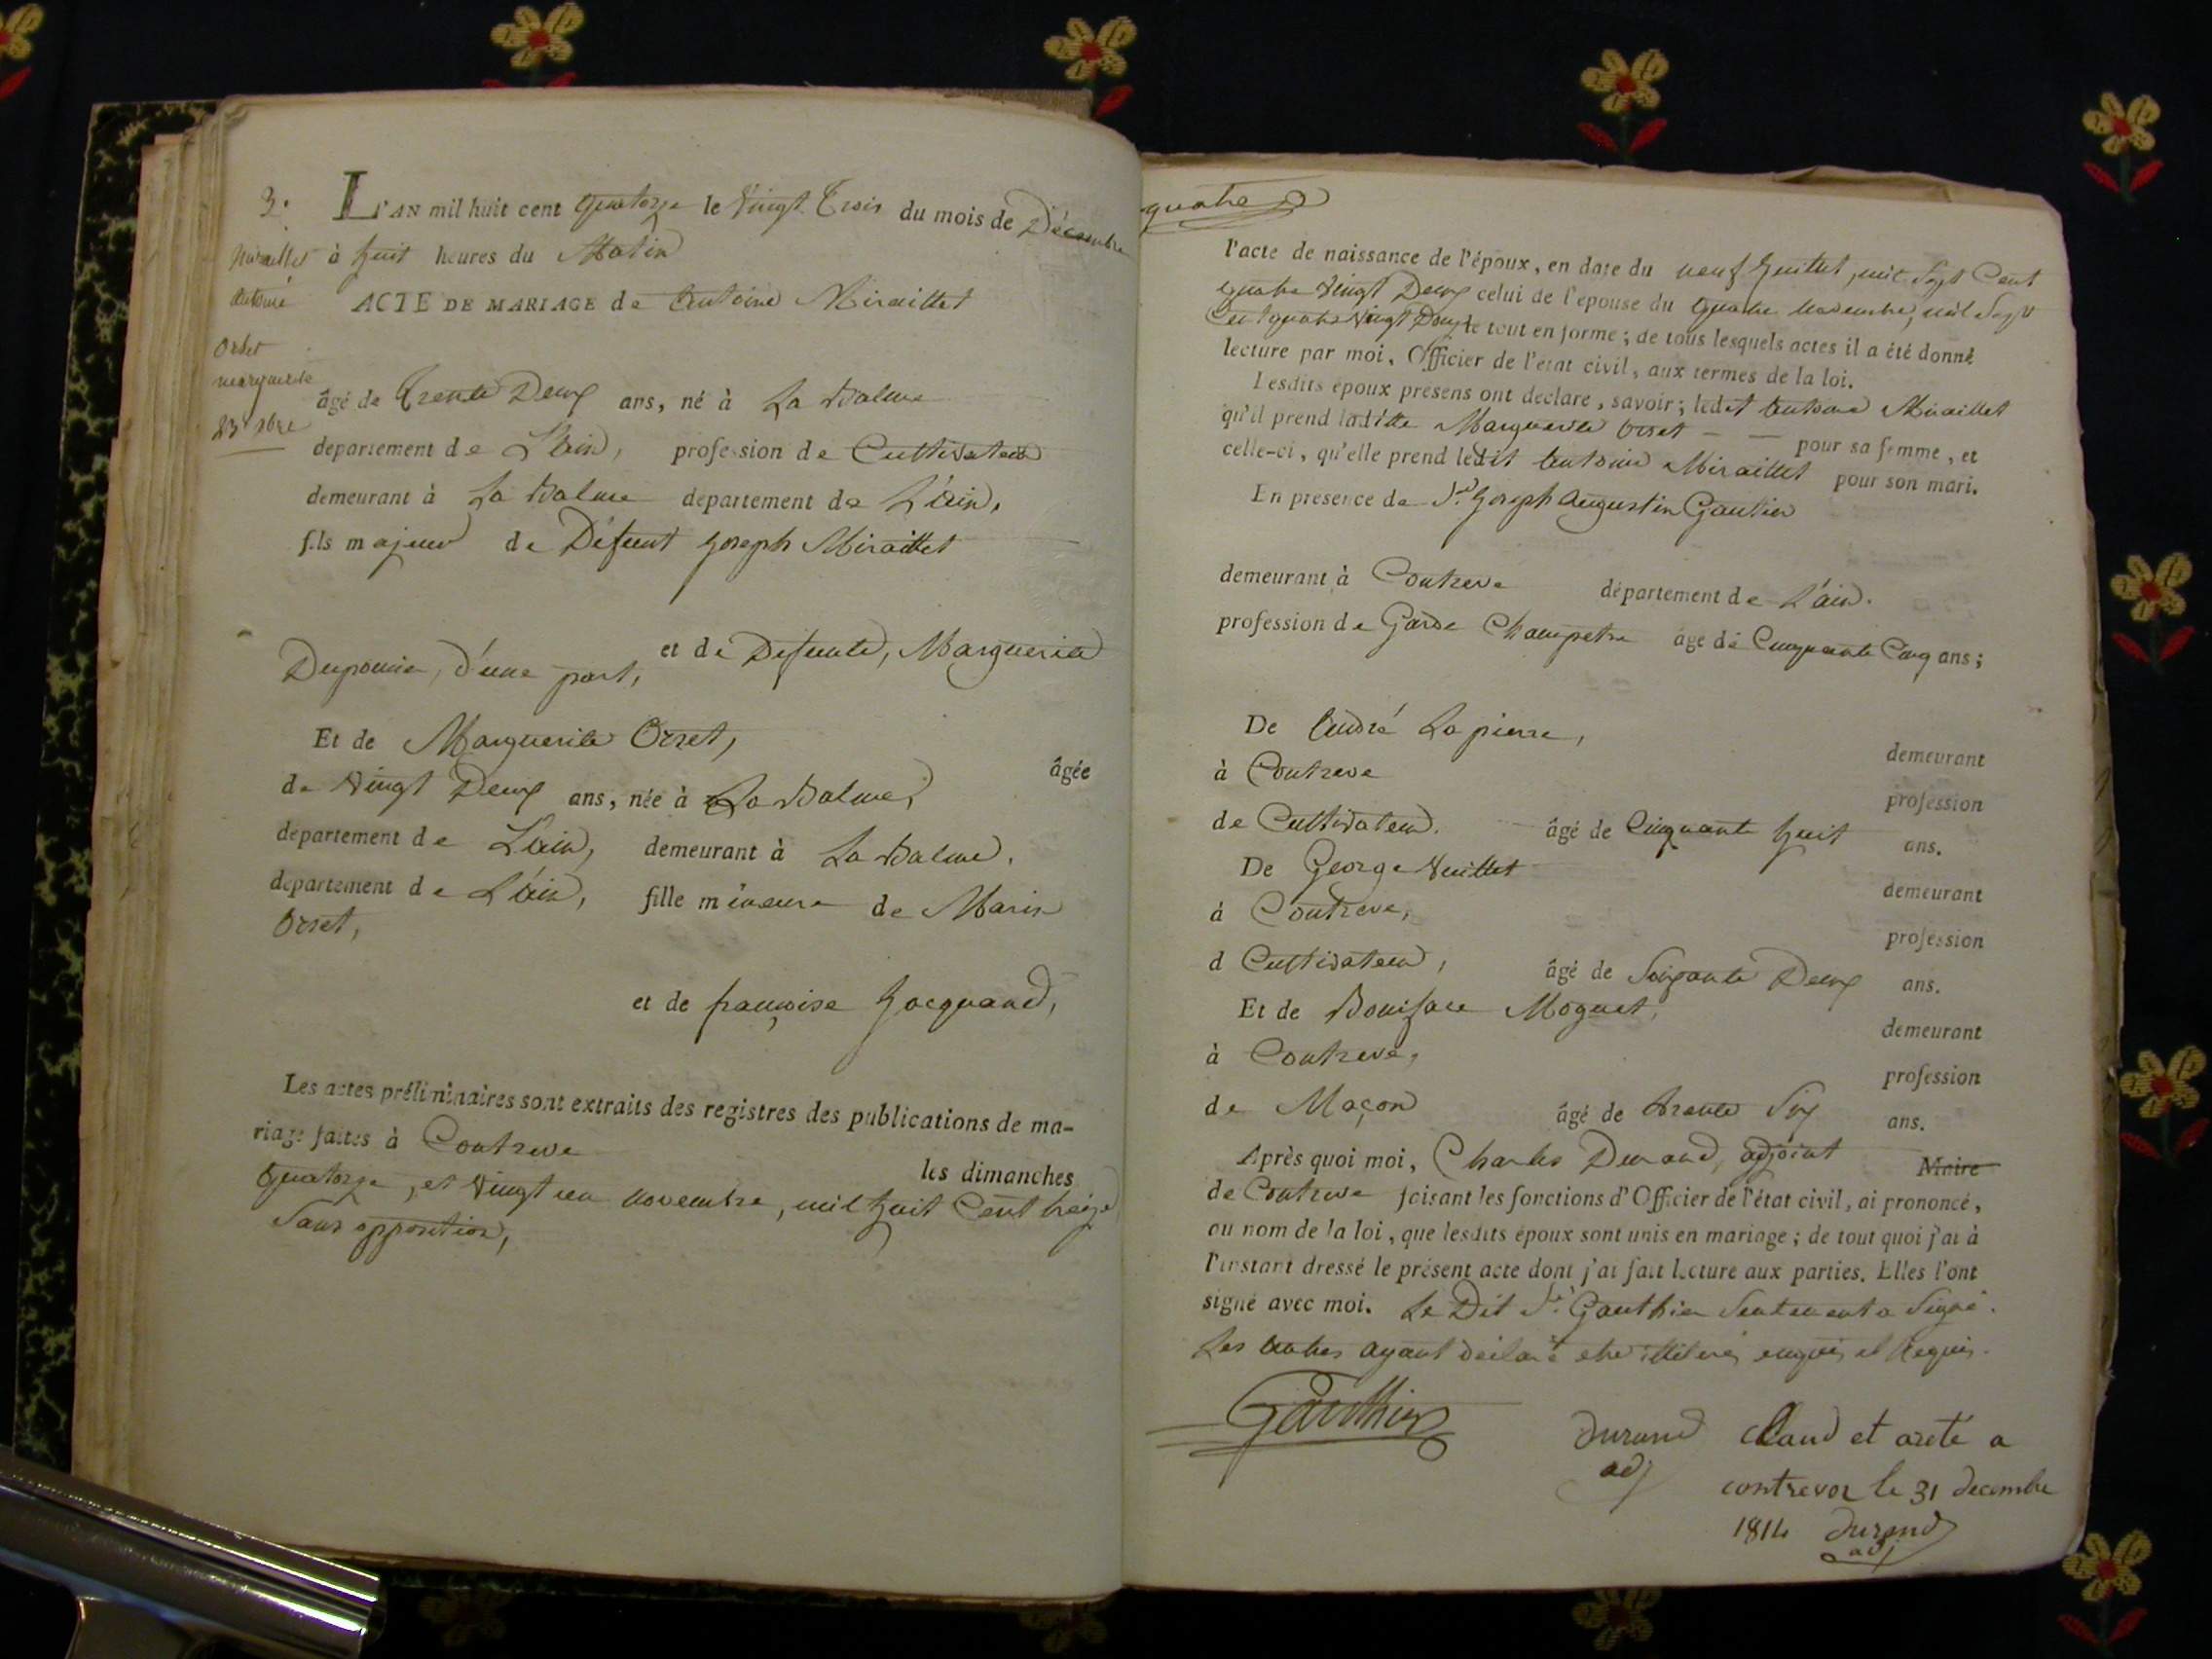 3.
L'AN mil huit cent quatorze le Vingt Trois du mois de Décembre
à huit heures du Matin
ACTE DE MARIAGE de Antoine Miraillet
Miraillet
Antoine
Orset
marguerite
23 xbre
âgé de Trente Deux ans, né à La Balme
département de L'ain, profession de Cultivateur
demeurant à La Balme département de L'ain,
fils majeur de Défunt Joseph Miraillet
et de Défunte, Marguerite
d'une part,
Et de Marguerite Orset, âgée
de Vingt Deux ans, née à La Balme,
département de L'ain, demeurant à La Balme,
département de L'ain, fille mineure de Marin
Orset,
et de françoise Jacquand,
Les actes préliminaires sont extraits des registres des publications de ma-
riage faites à Contreve les dimanches
quatorze, et Vingt un novembre, mil huit Cent treize
Sans opposition,
quatre
l'acte de naissance de l'époux, en date du neuf Juillet, mil Sept Cent
quatre Vingt Deux celui de l'épouse du quatre novembre, mil Sept
Cent quatre Vingt Douze le tout en forme; de tous lesquels actes il a été donné
lecture par moi, Officier de l'état civil, aux termes de la loi.
Lesdits époux présens ont déclaré, savoir; ledit Antoine Miraillet
qu'il prend laditte Marguerite Orset — — pour sa femme, et
celle-ci, qu'elle prend ledit Antoine Miraillet pour son mari.
En présence de Sr. Joseph Augustin Gautier
demeurant à Contreve département de L'ain.
profession de Garde Champetre âgé de Cinquante Cinq ans;
De André Lapierre, demeurant
à Contreve profession
de Cultivateur. âgé de Cinquante huit ans.
De George Vuillet demeurant
à Contreve, profession
d Cultivateur, âgé de Soixante Deux ans.
Et de Boniface Moguet, demeurant
à Contreve, profession
de Maçon âgé de trente Six ans.
Après quoi moi, Charles Durand, adjoint Maire
de Contreve faisant les fonctions d'Officier de l'état civil, ai prononcé,
au nom de la loi, que lesdits époux sont unis en mariage; de tout quoi j'ai à
l'instant dressé le présent acte dont j'ai fait lecture aux parties. Elles l'ont
signé avec moi. Le Dit Sr. Gauthier Seulement a Signé.
Les autres ayant déclaré etre illiteré, enquis et Requis.
Gauthier
durand
adj
Claud et areté a
contrevoz le 31 decembre
1814 durand
adj